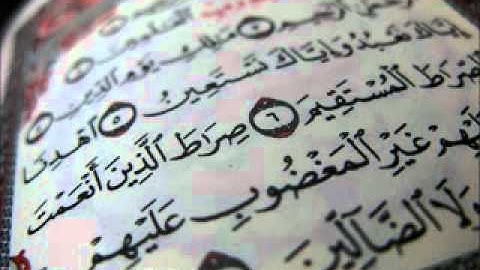 الرَّحْمَٰنِ الرَّحِيمِ مَٰلِكِ يَوْمِ الدِّينِ
إِيَّاكَ نَعْبُدُ وَإِيَّاكَ نَسْتَعِينُ ٥ اهْدِنَا
الصِّرَاطَ الْمُسْتَقِيمَ ٦ صِرَاطَ الَّذِينَ أَنْعَمْتَ
عَلَيْهِمْ غَيْرِ الْمَغْضُوبِ عَلَيْهِمْ
وَلَا الضَّالِّينَ